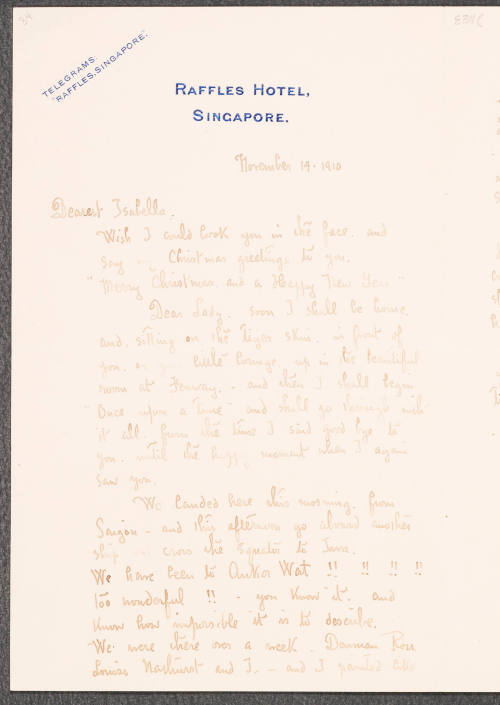 34
838C
TELEGRAMS:
"RAFFLES, SINGAPORE."
RAFFLES HOTEL,
SINGAPORE.
November 14 · 1910
Dearest Isabella.
Wish I could look you in the face. and
say Christmas greetings to you.
"Merry Christmas and a Happy New Year"
Dear Lady. soon I shall be home
and sitting on the Tiger skin. in front of
you. on little lounge. up in the beautiful
room at Fenway. - and then I shall begin
"Once upon a Time" and shall go through with
it all. from the time I said good bye to
you. until the happy moment when I again
saw you.
We landed here this morning. from
Saigon - and this afternoon go aboard another
ship cross the Equator to Java.
We have been to Ankor Wat !! !! !! !!
Too wonderful !! - you know it. and
know how impossible it is to describe.
We were there over a week. Denman Ross
Louise Nathurst and I. - and I painted like